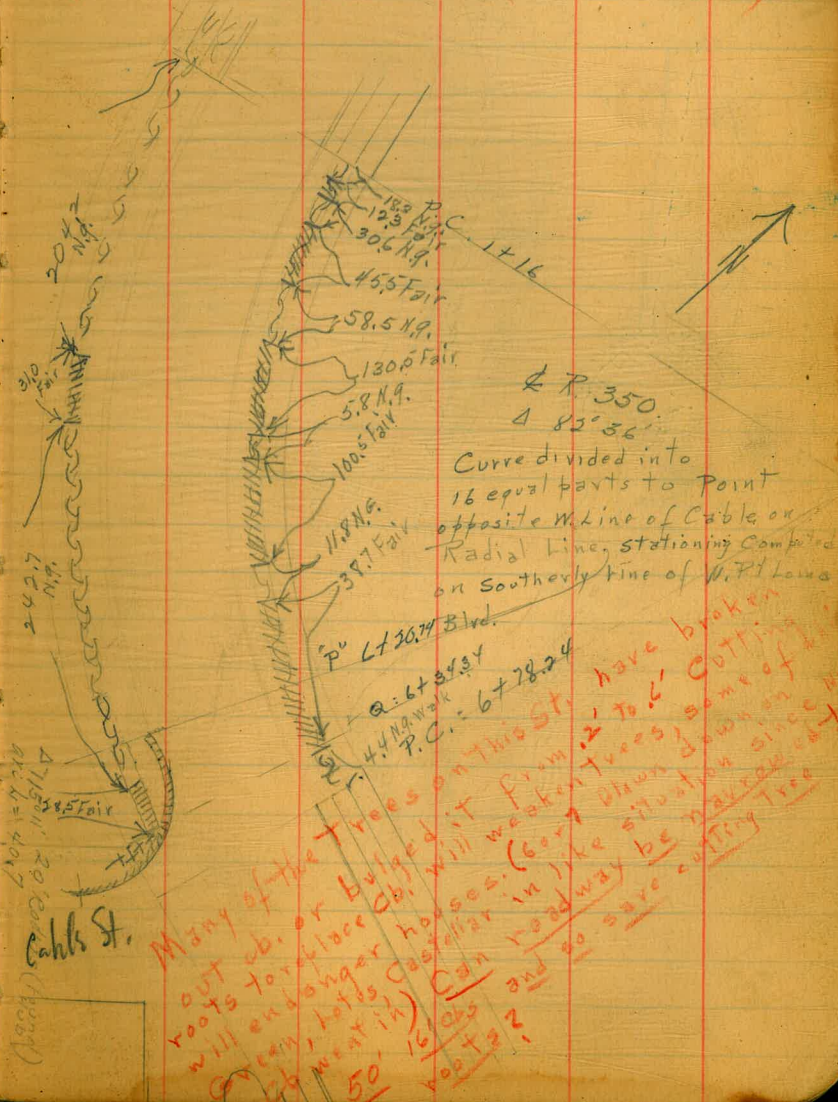 204.2
N.g.
31.0
Fair
242.7
N.g.
28.5 Fair
Cable St.
18.3 N.g.
12.3 Fair
30.6 N.g.
45.5 Fair
58.5 N.g.
130.5 Fair
5.8 N.g.
100.5 Fair
11.8 N.G.
38.7 Fair
P.C. 1+16
N
℄ R. 350
Δ 82° 36'
Curve divided into
16 equal parts to Point
opposite W. Line of Cable on
Radial Line, Stationing Computed
on Southerly Line of N. Pt Loma
Blvd.
"P" 6+20.74
Q = 6+34.34
4.4 N.g. Walk
P.C. = 6+78.24
Many of the Trees on this St. have broken
out cb. or bulged it from .2' to .6' Cutting
roots to replace cb. will weaken trees, some of
will endanger houses. (6 or 7 blown down on
in like situation since
cb went in) Can roadway be narrowed
50' 16' cbs and so save cutting tree
roots?